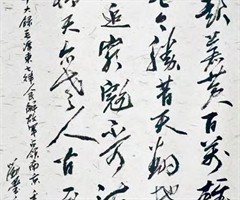 起苍黄百万雄
今勝昔天翻地
追穷寇不可沽
情天亦老人间
录毛泽东七律人民解放军占领南京